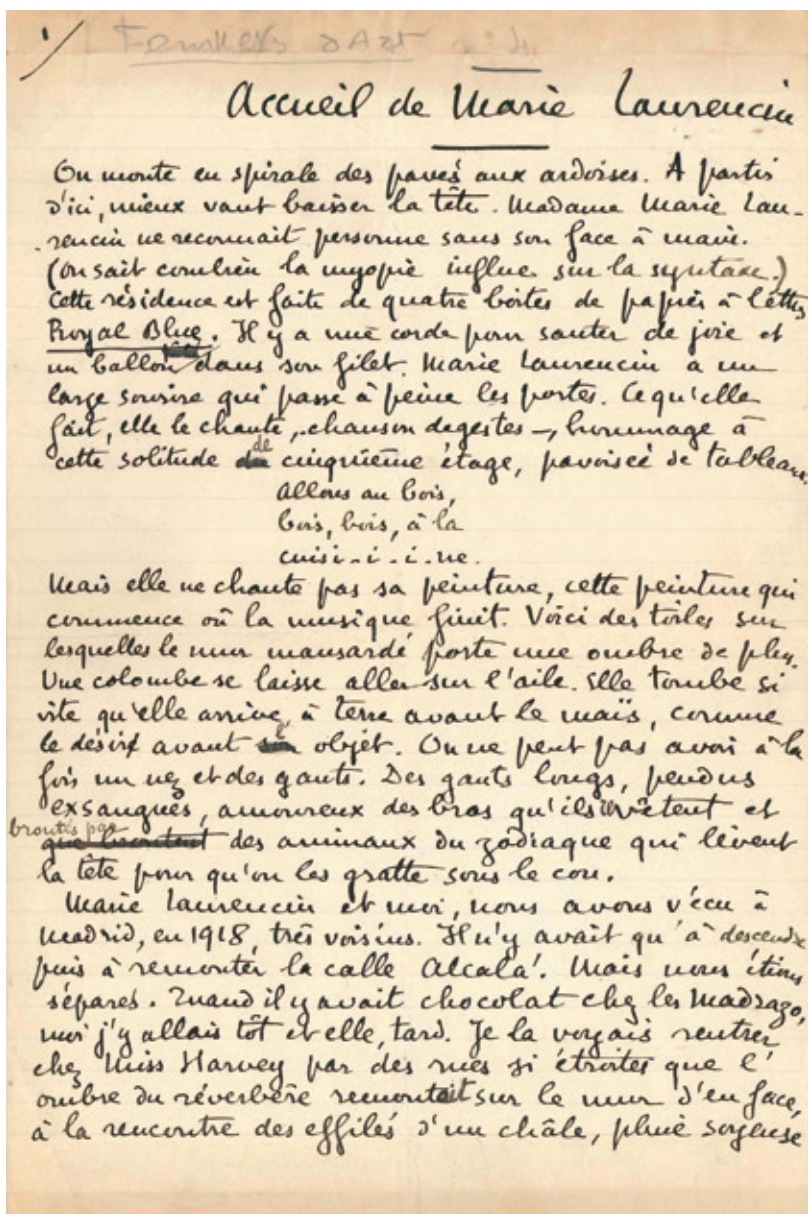 1/
Feuillets d'Art n° 4
Accueil de Marie Laurencin
On monte en spirale des pavés aux ardoises. A partir
d'ici, mieux vaut baisser la tête. Madame Marie Lau-
rencin ne reconnait personne sans son face à main.
(On sait combien la myopie influe sur la syntaxe.)
Cette résidence est faite de quatre boîtes de papier à lettres
Royal Blue. Il y a une corde pour sauter de joie et
un ballon dans son filet. Marie Laurencin a un
large sourire qui passe à peine les portes. Ce qu'elle
fait, elle le chante, chanson de gestes, hommage à
cette solitude de cinquième étage, pavoisée de tableaux.
Allons au bois,
bois, bois, à la
cuisi-i-i-ne.
Mais elle ne chante pas sa peinture, cette peinture qui
commence où la musique finit. Voici des toiles sur
lesquelles le mur mansardé porte une ombre de plus.
Une colombe se laisse aller sur l'aile. Elle tombe si
vite qu'elle arrive à terre avant le maïs, comme
le désir avant l'objet. On ne peut pas avoir à la
fois un nez et des gants. Des gants longs, pendus
exsangues, amoureux des bras qu'ils vêtent et
broutés par des animaux du zodiaque qui lèvent
la tête pour qu'on les gratte sous le cou.
Marie Laurencin et moi, nous avons vécu à
Madrid, en 1918, très voisins. Il n'y avait qu'à descendre
puis à remonter la calle Alcalá. Mais nous étions
séparés. Quand il y avait chocolat chez les Madrazo,
moi j'y allais tôt et elle, tard. Je la voyais rentrer
chez Miss Harvey par des rues si étroites que l'
ombre du réverbère remontait sur le mur d'en face,
à la rencontre des effilés d'un châle, pluie soyeuse